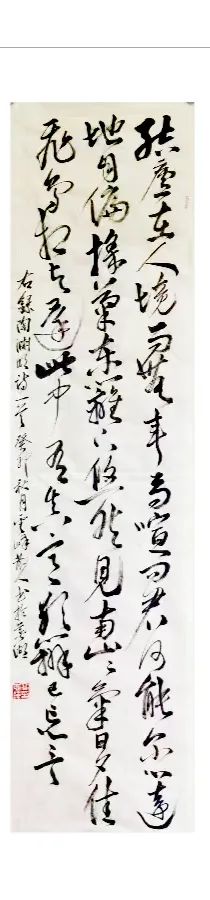 結廬在人境而無車馬喧問君何能尔心遠
地自偏採菊東籬下悠然見南山〻氣日夕佳
飛鳥相與還此中有真意欲辯已忘言
右錄陶淵明詩一首癸卯秋月雲峰人書於湖